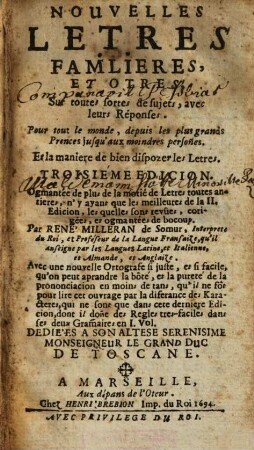 NOUVELLES
LETRES
FAMLIERES,
ET OTRES,
Sur toutes sortes de sujets, avec
leurs Réponses.
Pour tout le monde, depuis les plus grands
Prences jusqu'aux moindres persones.
Et la maniere de bien disposer les Letres.
TROISIEME EDICION.
Ogmantée de plus de la motié de Letres toutes an-
tieres, n'y ayans que les meilleures de la II.
Edicion, les quelles sons revües, cori-
gées, et ogmantées de bocoup.
Par RENÉ MILLERAN de Somur, Interprete
du Roi, et Profeseur de la Langue Fransaize, qu'il
anseigne par les Langues Latine, et Italienne,
et Almande, et Anglaize.
Avec une nouvelle Ortografe si juste, et si facile,
qu'on peut aprandre la bôté, et la pureté de la
prononciacion en moins de tans, qu'il ne fôt
pour lire cet ouvrage par la diferance des Kara-
cteres, qui ne sons que dans cete derniere Edi-
cion, dont il done des Regles tres-faciles dans
ses deux Gramaires en I. Vol.
DEDIÉES A SON ALTESE SERENISIME
MONSEIGNEUR LE GRAND DUC
DE TOSCANE.
A MARSEILLE,
Aux dépans de l'Oteur.
Chez HENRI BREBION Imp. du Roi 1694.
AVEC PRIVILEGE DU ROI.